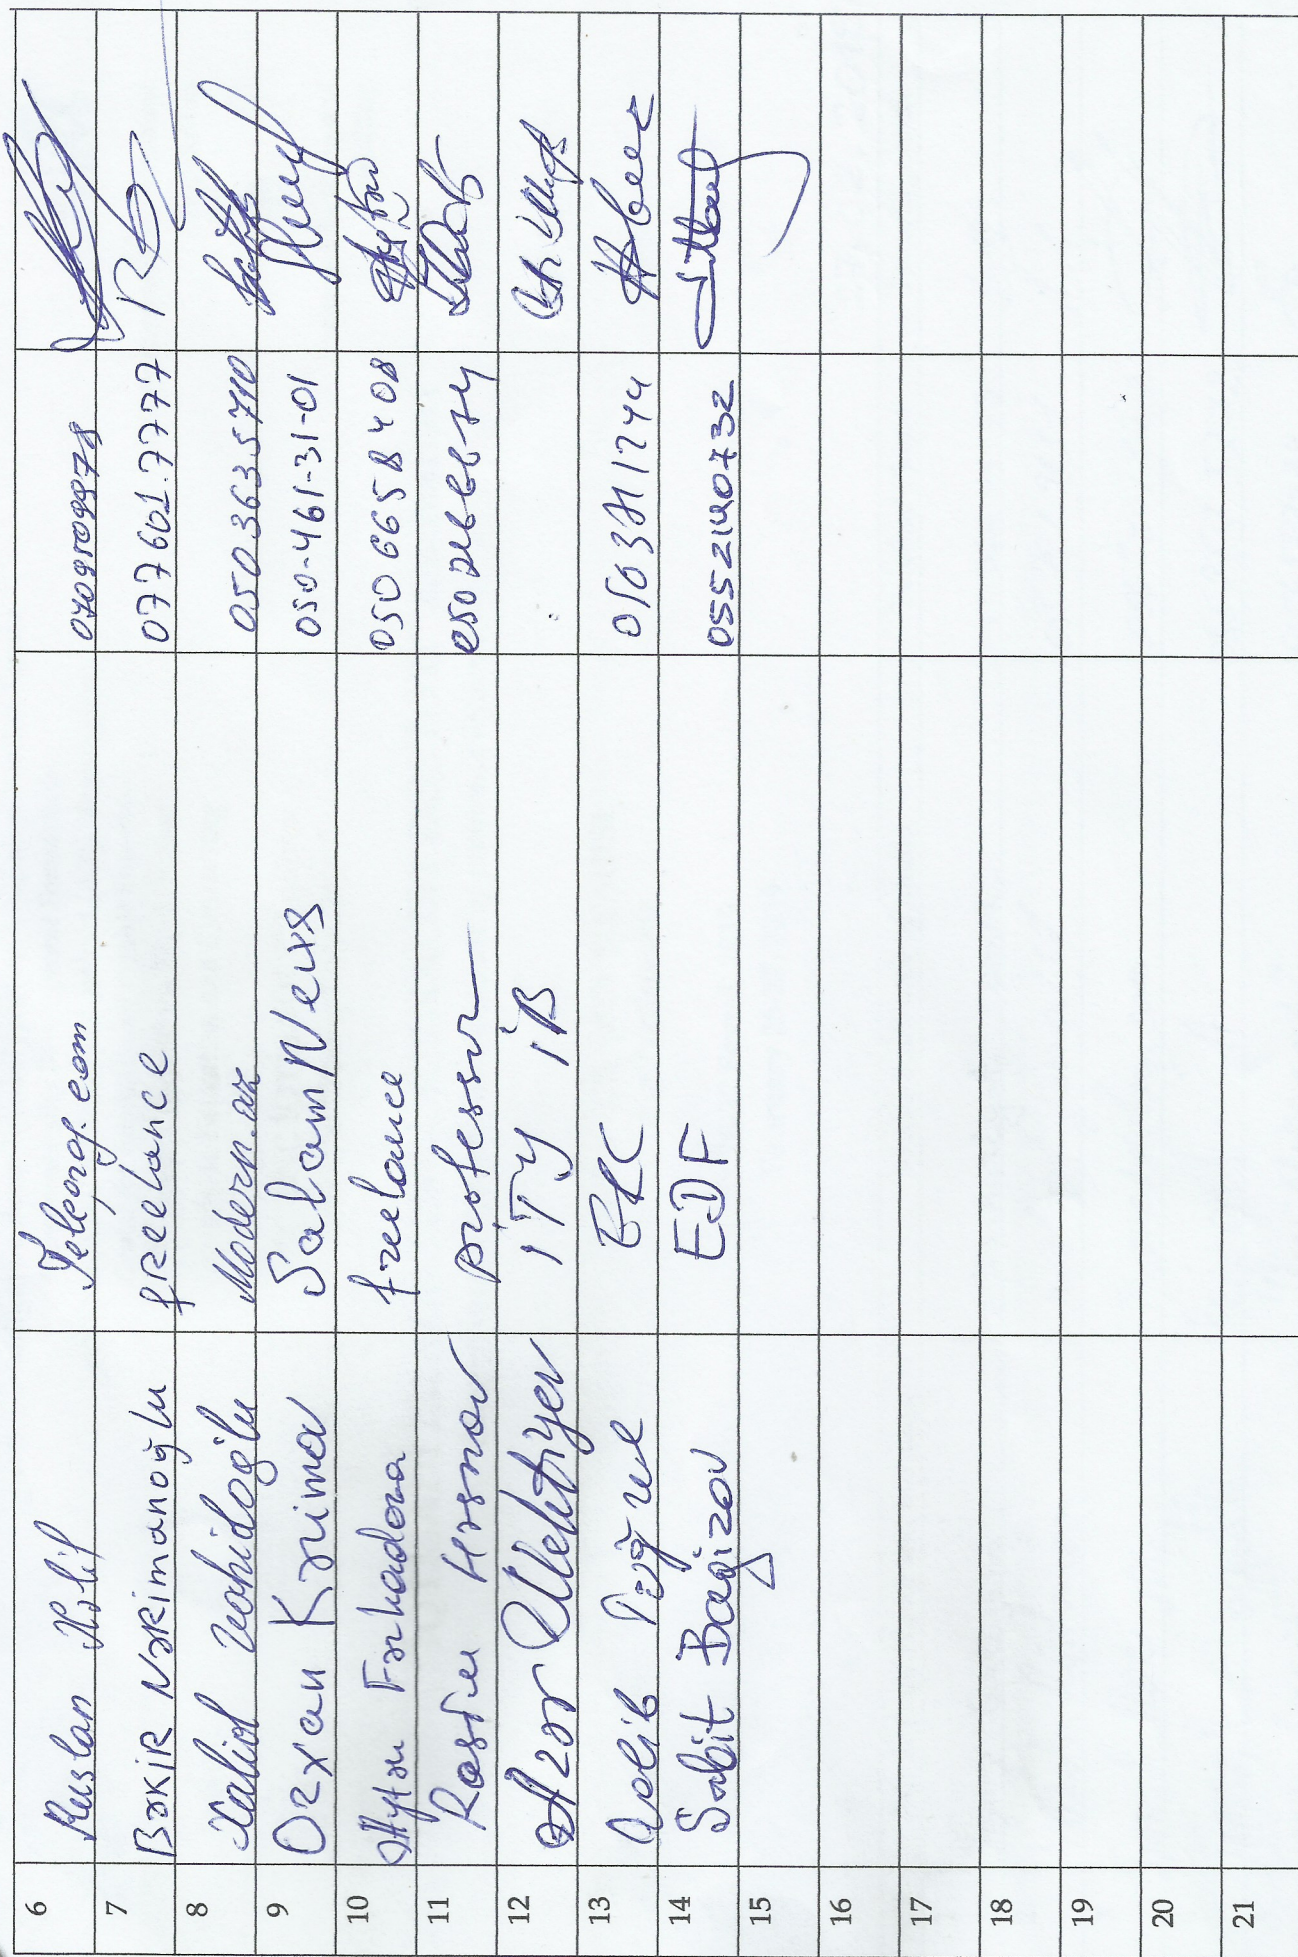 6 Ruslan Xəlil Teleqraf.com
7 Bəkir Nərimanoğlu freelance 077 601.7777
8 Xalid Vahidoğlu Modern.az 050 363 57 10
9 Orxan Kərimov SalamNews 050-461-31-01
10 Aytən Fərhadova freelance 050 665 84 08
11 Rasim Həsənov professor
12 Azər Mehtiyev İTS İB
13 Qalib Toğrul BKC
14 Sabit Bağırov EDF 0552140732
15
16
17
18
19
20
21